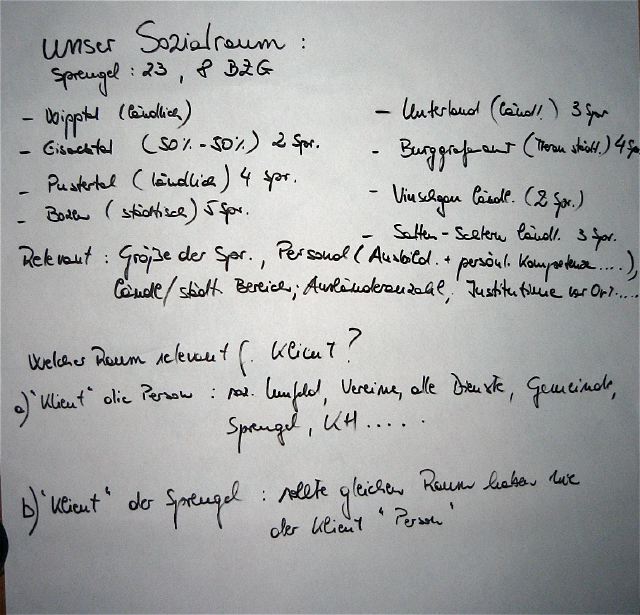 unser Sozialraum :
Sprengel : 23 , 8 BZG
- Wipptal (ländlich)
- Eisacktal (50% - 50%) 2 Spr.
- Pustertal (ländlich) 4 Spr.
- Bozen (städtisch) 5 Spr.
- Unterland (ländl.) 3 Spr
- Burggrafenamt (Meran städt.) 4 Spr
- Vinschgau ländl. (2 Spr.)
- Salten-Schlern ländl. 3 Spr.
Relevant : Größe der Spr., Personal (Ausbild. + persönl. Kompetenzen ....),
ländl/städt. Bereich; Ausländeranzahl, Institutionen vor Ort....
Welcher Raum relevant f. Klient?
a) "Klient" die Person : soz. Umfeld, Vereine, alle Dienste, Gemeinde,
Sprengel, KH .....
b) "Klient" der Sprengel : sollte gleichen Raum haben wie
der Klient "Person"